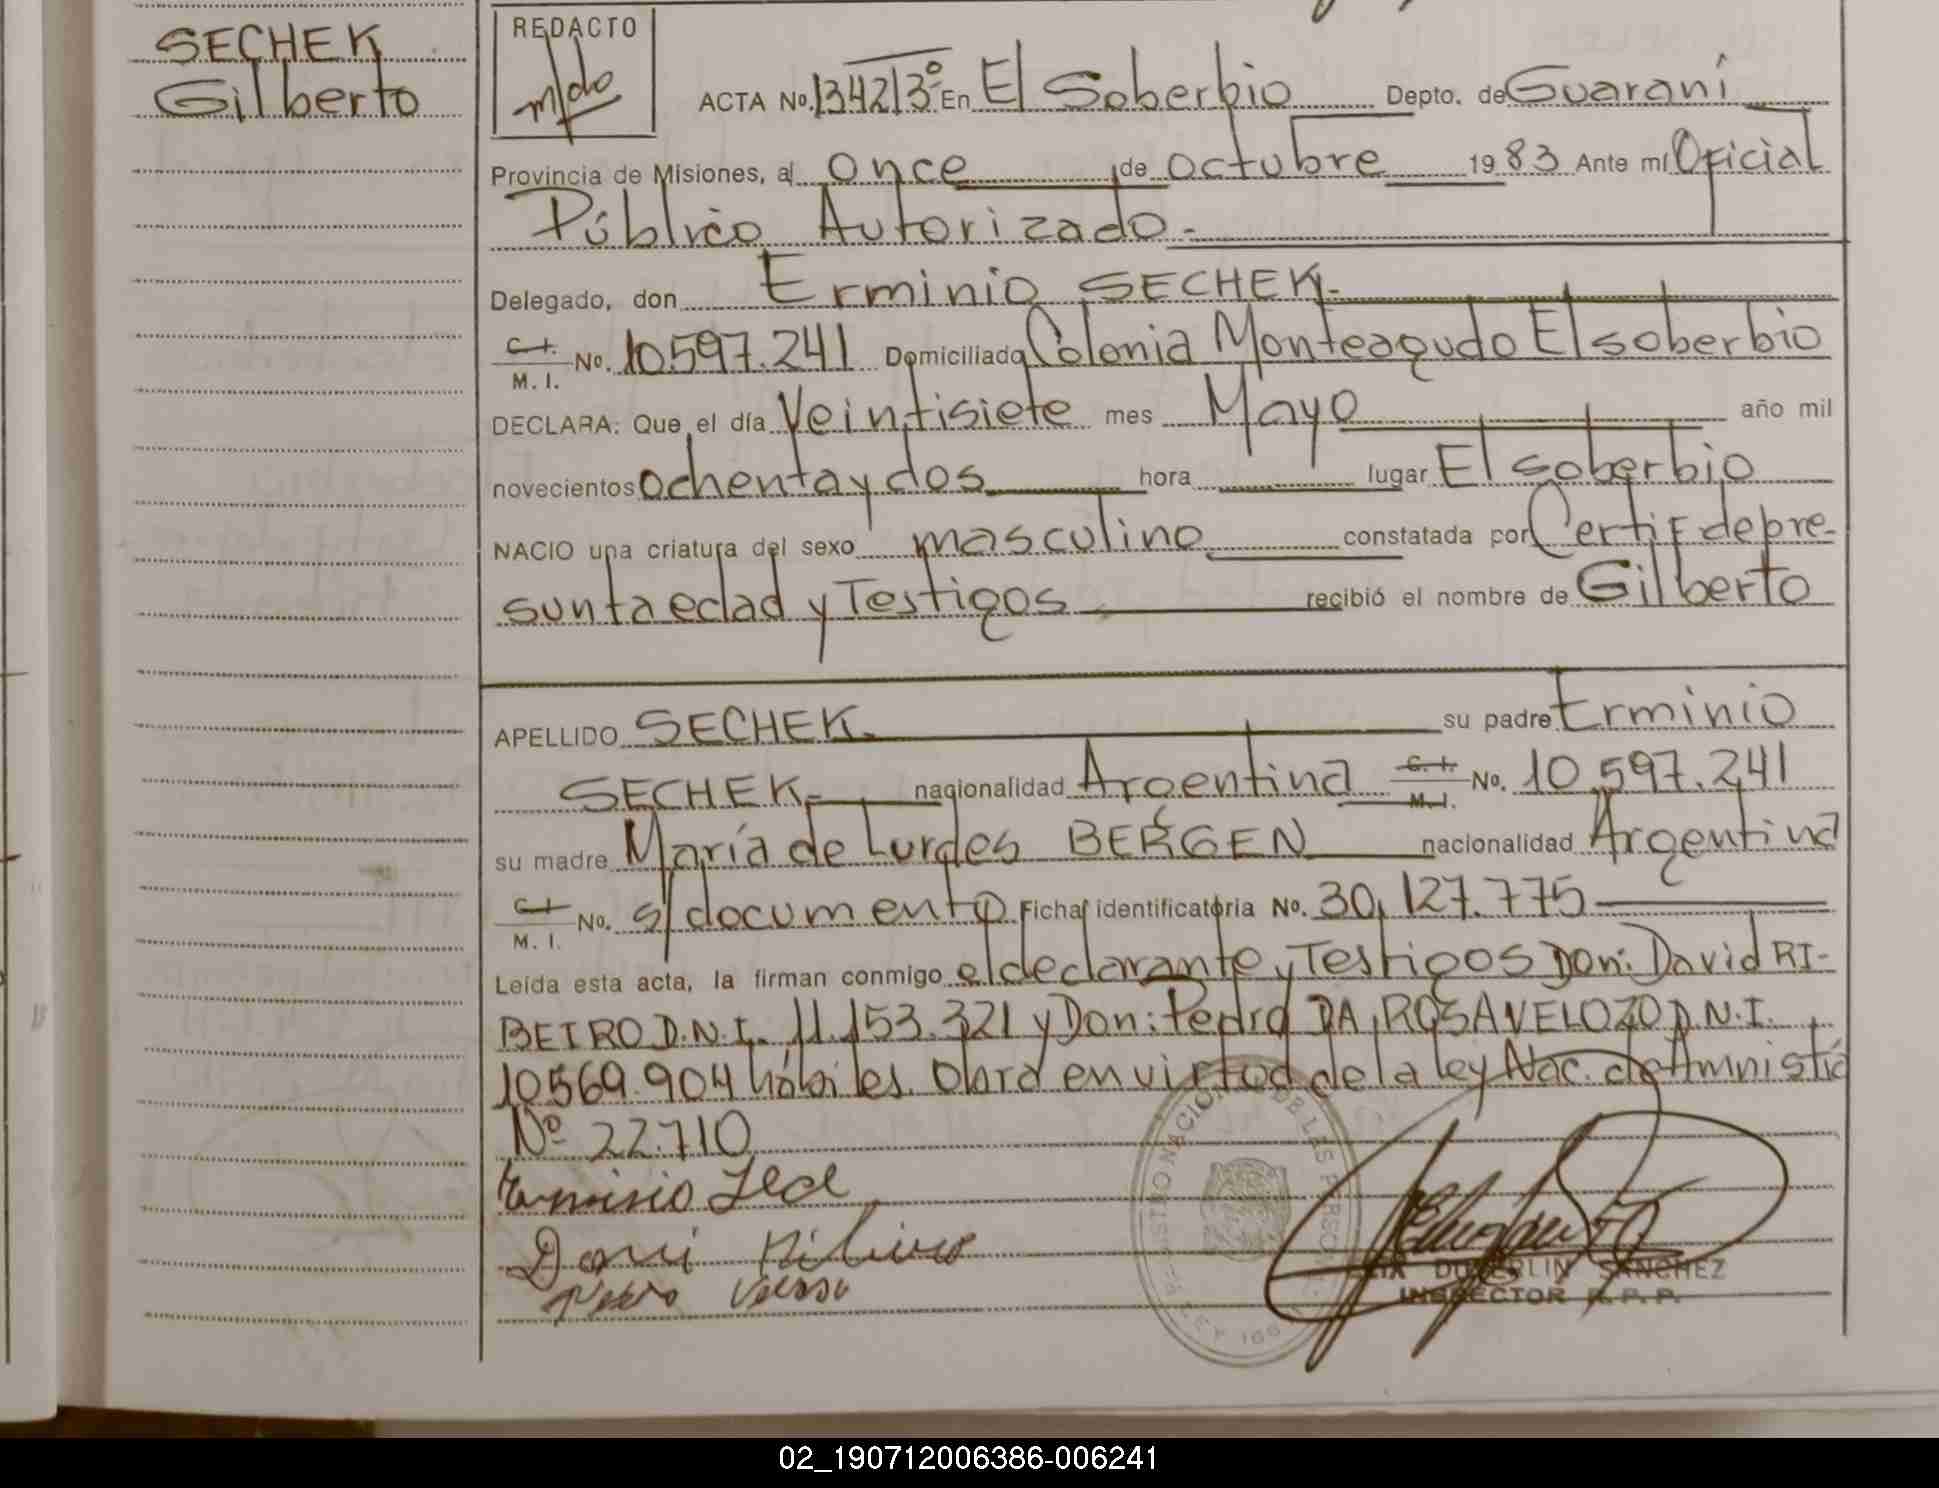 SECHEK
Gilberto
REDACTO
ACTA No. 1342/3º En El Soberbio Depto. de Guaraní
Provincia de Misiones, al once de octubre 1983 Ante mí Oficial
Público Autorizado.-
Delegado, don Erminio SECHEK.-
C.I.
M. I. No. 10.597.241 Domiciliado Colonia Monteagudo El soberbio
DECLARA: Que el día Veintisiete mes Mayo año mil
novecientos ochenta y dos hora lugar El soberbio
NACIO una criatura del sexo masculino constatada por Certif de pre-
sunta edad y Testigos recibió el nombre de Gilberto
APELLIDO SECHEK su padre Erminio
SECHEK.- nacionalidad Argentina C.I. M.I. No. 10.597.241
su madre María de Lurdes BERGEN nacionalidad Argentina
C.I.
M. I. No. s/documento Ficha identificatoria No. 30.127.775
Leída esta acta, la firman conmigo el declarante y Testigos Don: David RI-
BEIRO D.N.I. 11.153.321 y Don: Pedro DA ROSA VELOZO D.N.I.
10569.904 hábiles. Obra en virtud de la ley Nac. de Amnistía
Nº 22.710
REGISTRO NACIONAL DE LAS PERSONAS
LEY
DUMERLIN SANCHEZ
INSPECTOR R. P. P.
02_190712006386-006241